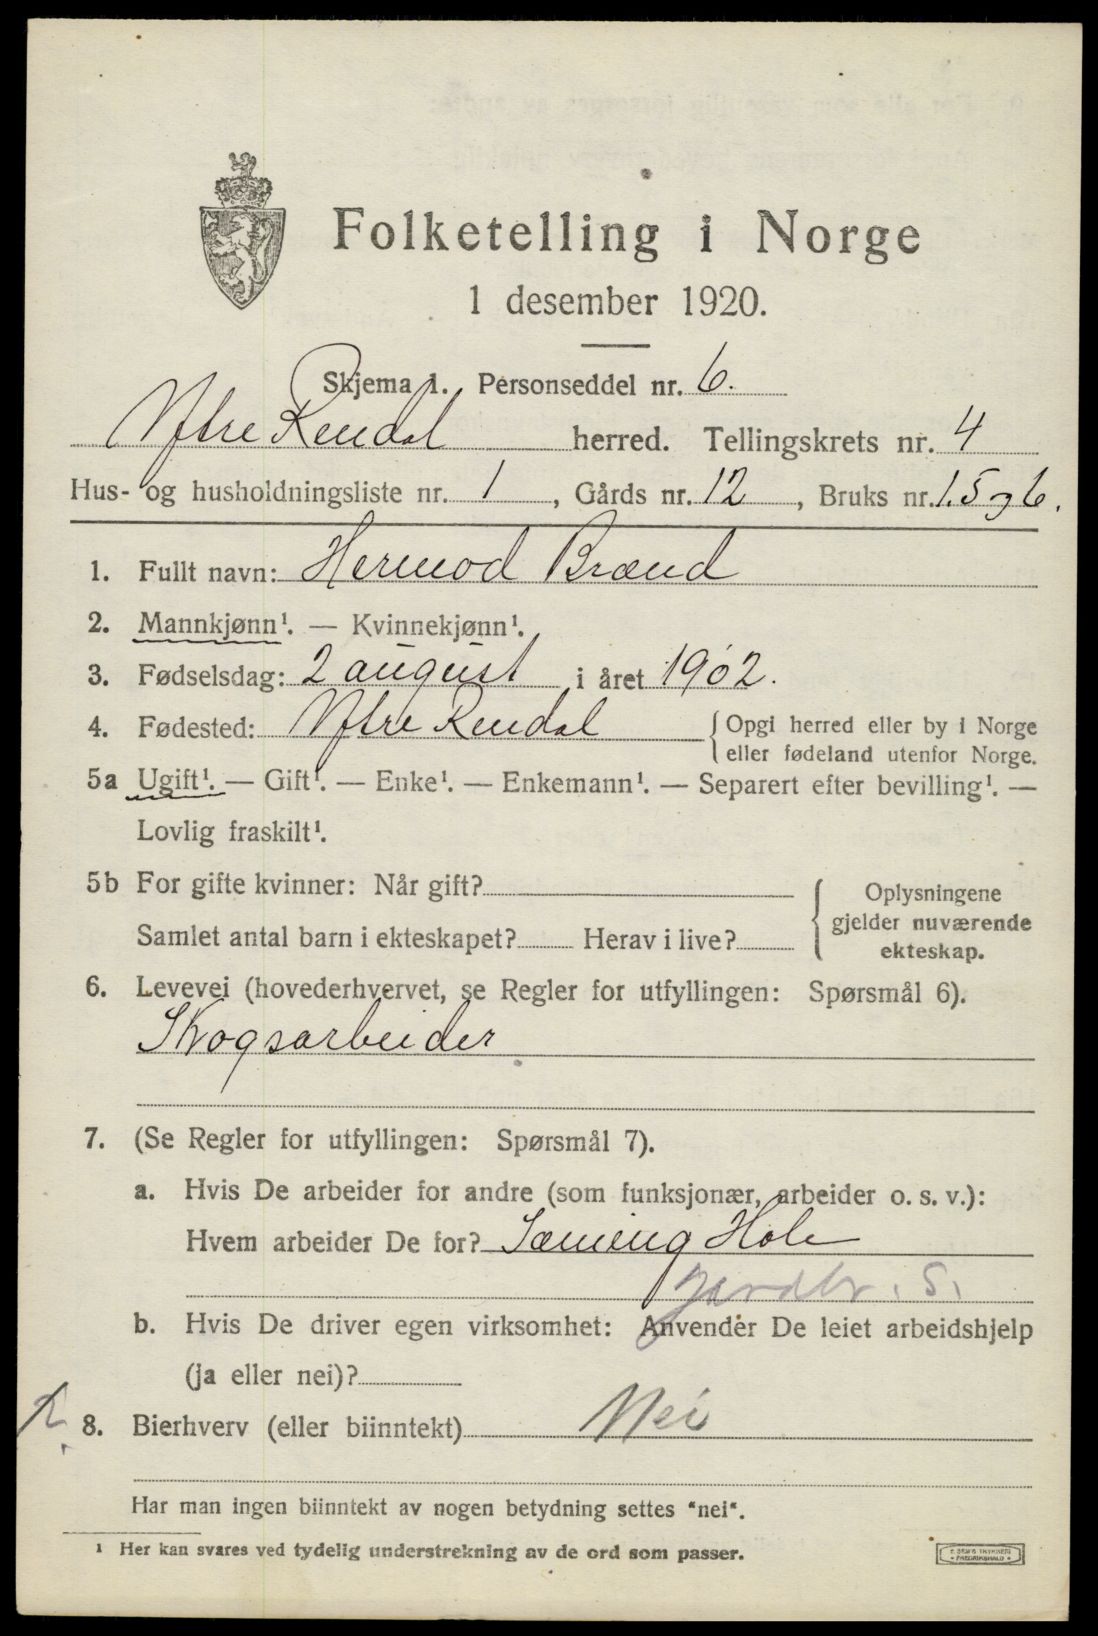 Folketelling i Norge
1 desember 1920.
Skjema 1. Personseddel nr. 6.
Ytre Rendal herred. Tellingskrets nr. 4
Hus- og husholdningsliste nr. 1, Gårds nr. 12, Bruks nr. 1.5 og 6.
1. Fullt navn: Hermod Brænd
2. Mannkjønn¹. — Kvinnekjønn¹.
3. Fødselsdag: 2 august i året 1902.
4. Fødested: Ytre Rendal { Opgi herred eller by i Norge
eller fødeland utenfor Norge.
5a Ugift¹. — Gift¹. — Enke¹. — Enkemann¹. — Separert efter bevilling¹. —
Lovlig fraskilt¹.
5b For gifte kvinner: Når gift?
Samlet antal barn i ekteskapet? Herav i live?
{ Oplysningene
gjelder nuværende
ekteskap.
6. Levevei (hovederhvervet, se Regler for utfyllingen: Spørsmål 6).
Skogsarbeider
7. (Se Regler for utfyllingen: Spørsmål 7).
a. Hvis De arbeider for andre (som funksjonær, arbeider o. s. v.):
Hvem arbeider De for? Sæming Hole
Jardbr. S.
b. Hvis De driver egen virksomhet: Anvender De leiet arbeidshjelp
(ja eller nei)?
8. Bierhverv (eller biinntekt) Nei
Har man ingen biinntekt av nogen betydning settes "nei".
¹ Her kan svares ved tydelig understrekning av de ord som passer.